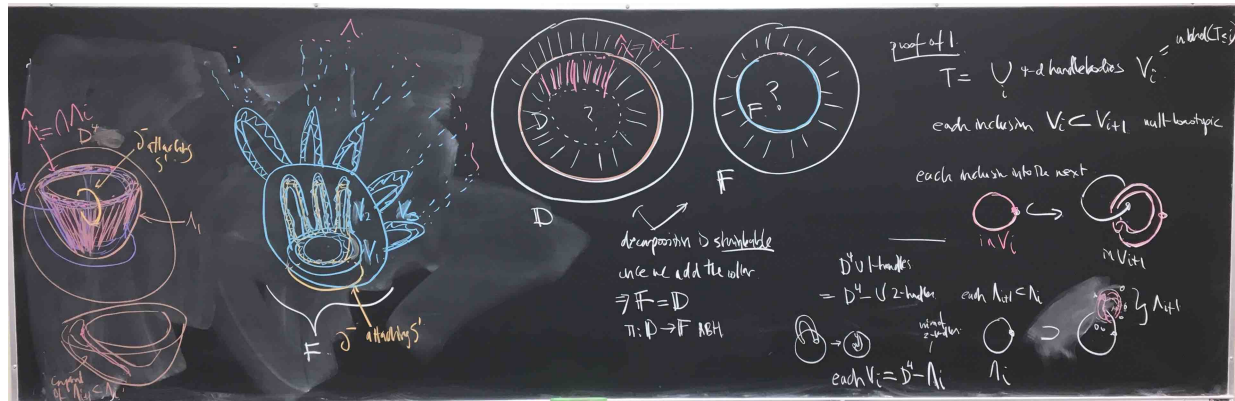 Λ̂ = ∩Λi
D⁴
∂⁻ attaching
S¹
Λ2
Λ1
of Λi+1 ⊆ Λi
Λ
V2
V1
F
∂⁻ attaching S¹
D
?
D
F
?
F
decomposition is shrinkable
once we add the collar
⇒ F = D
π: D → F ABH
proof of 1.
T = ∪ 4-d handlebodies Vi
i
each inclusion Vi ⊂ Vi+1 null-homotopic
each inclusion into the next
in Vi
in Vi+1
D⁴ ∪ 1-handles
= D⁴ - ∪ 2-handles
each Λi+1 ⊂ Λi
Λi
Λi+1
each Vi = D⁴ - Λi